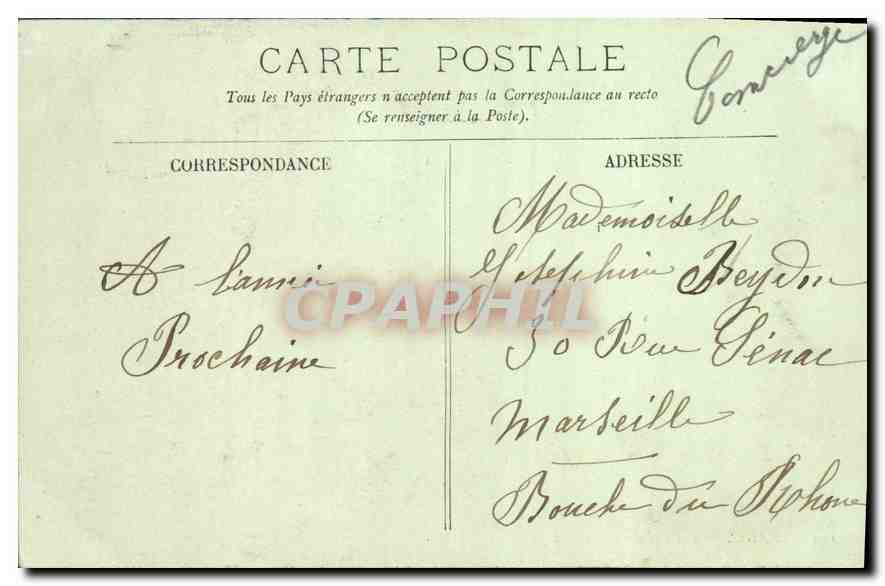 CARTE POSTALE
Concierge
Tous les Pays étrangers n'acceptent pas la Correspondance au recto
(Se renseigner à la Poste).
CORRESPONDANCE
A l'année
Prochaine
ADRESSE
Mademoiselle
Joséphine Beydon
30 Rue Sénac
Marseille
Bouche du Rhone
CPAPHIL